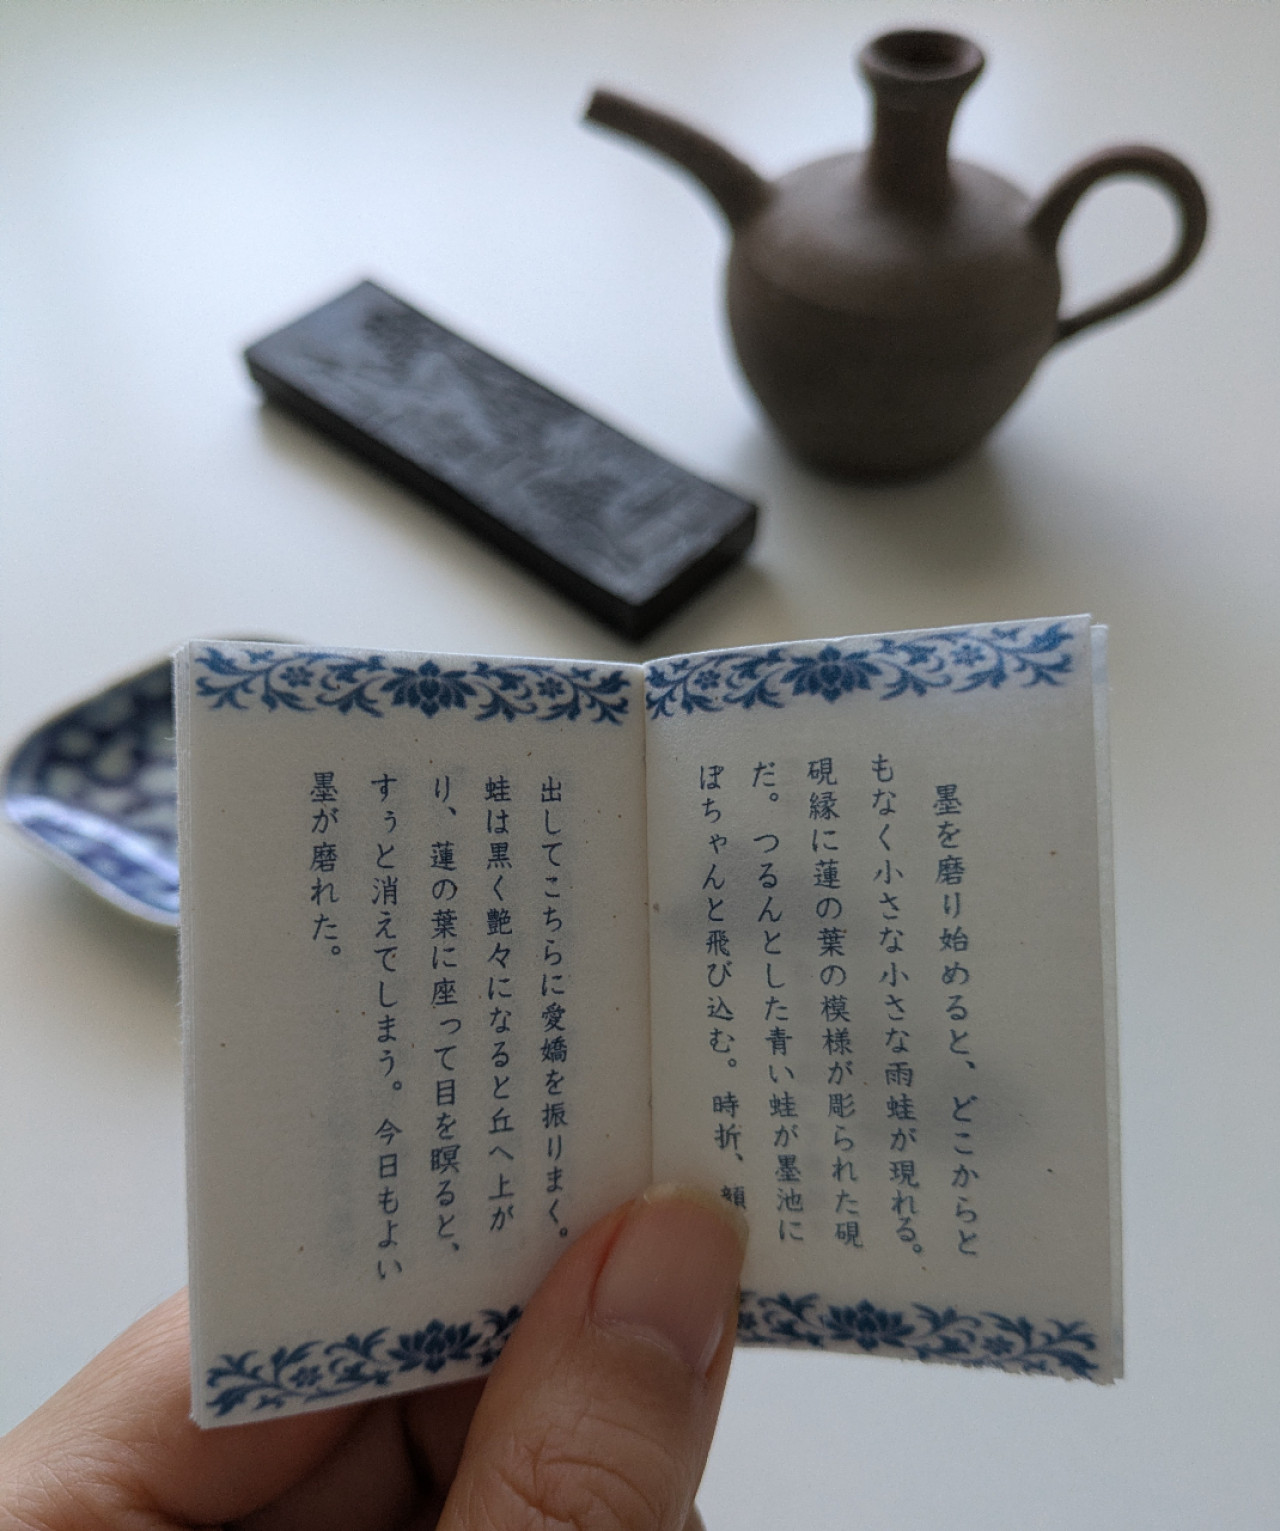 墨を磨り始めると、どこからと
もなく小さな小さな雨蛙が現れる。
硯縁に蓮の葉の模様が彫られた硯
だ。つるんとした青い蛙が墨池に
ぽちゃんと飛び込む。時折、顔
出してこちらに愛嬌を振りまく。
蛙は黒く艶々になると丘へ上が
り、蓮の葉に座って目を瞑ると、
すぅと消えてしまう。今日もよい
墨が磨れた。